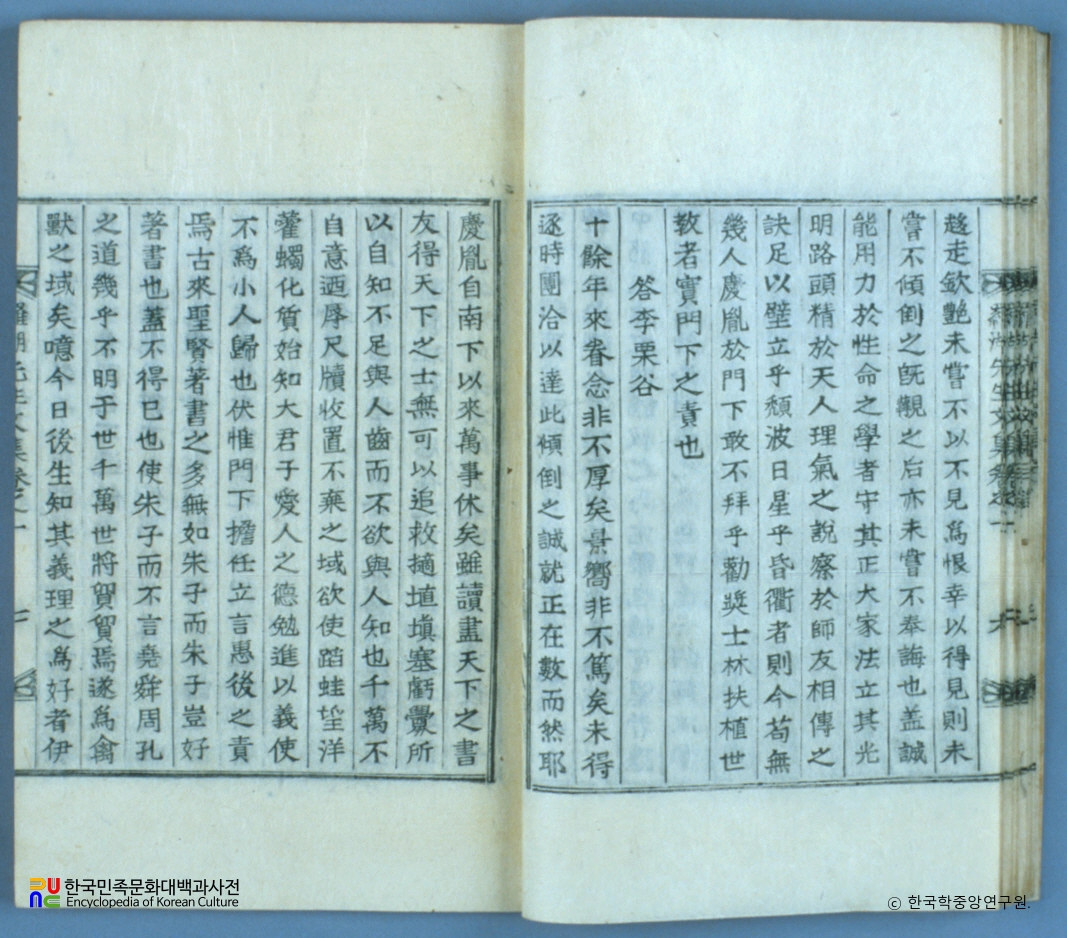 趍走欽艶未嘗不以不見爲恨幸以得見則未
嘗不傾倒之旣觀之后亦未嘗不奉誨也盖誠
能用力於性命之學者守其正大家法立其光
明路頭精於天人理氣之說察於師友相傳之
訣足以壁立乎頹波日星乎昏衢者則今苟無
幾人慶胤於門下敢不拜乎勸奬士林扶植世
敎者實門下之責也
答李栗谷
十餘年來眷念非不厚矣景嚮非不篤矣未得
逐時團洽以達此傾倒之誠就正在數而然耶
慶胤自南下以來萬事休矣雖讀盡天下之書
友得天下之士無可以追救擿埴塡塞虧釁所
以自知不足與人齒而不欲與人知也千萬不
自意迺辱尺牘收置不棄之域欲使蹈蛙望洋
藿蠋化質始知大君子愛人之德勉進以義使
不爲小人歸也伏惟門下擔任立言惠後之責
焉古來聖賢著書之多無如朱子而朱子豈好
著書也蓋不得已也使朱子而不言堯舜周孔
之道幾乎不明于世千萬世將貿貿焉遂爲禽
獸之域矣噫今日後生知其義理之爲好者伊
先生文集卷之一
한국민족문화대백과사전
Encyclopedia of Korean Culture
© 한국학중앙연구원.